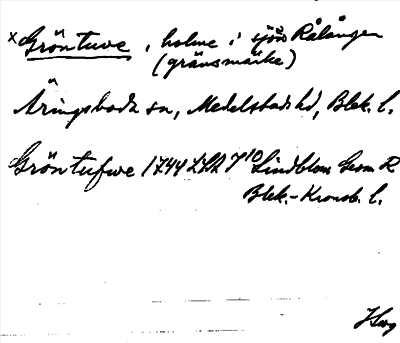 ×Gröntuve, holme i sjön Rålången
(gränsmärke)
Åryngsboda sn, Medelstads hd, Blek. l.
Gröntufwe 1744 LSA 7¹⁰ Lindblom Geom R
Blek.-Kronob. l.